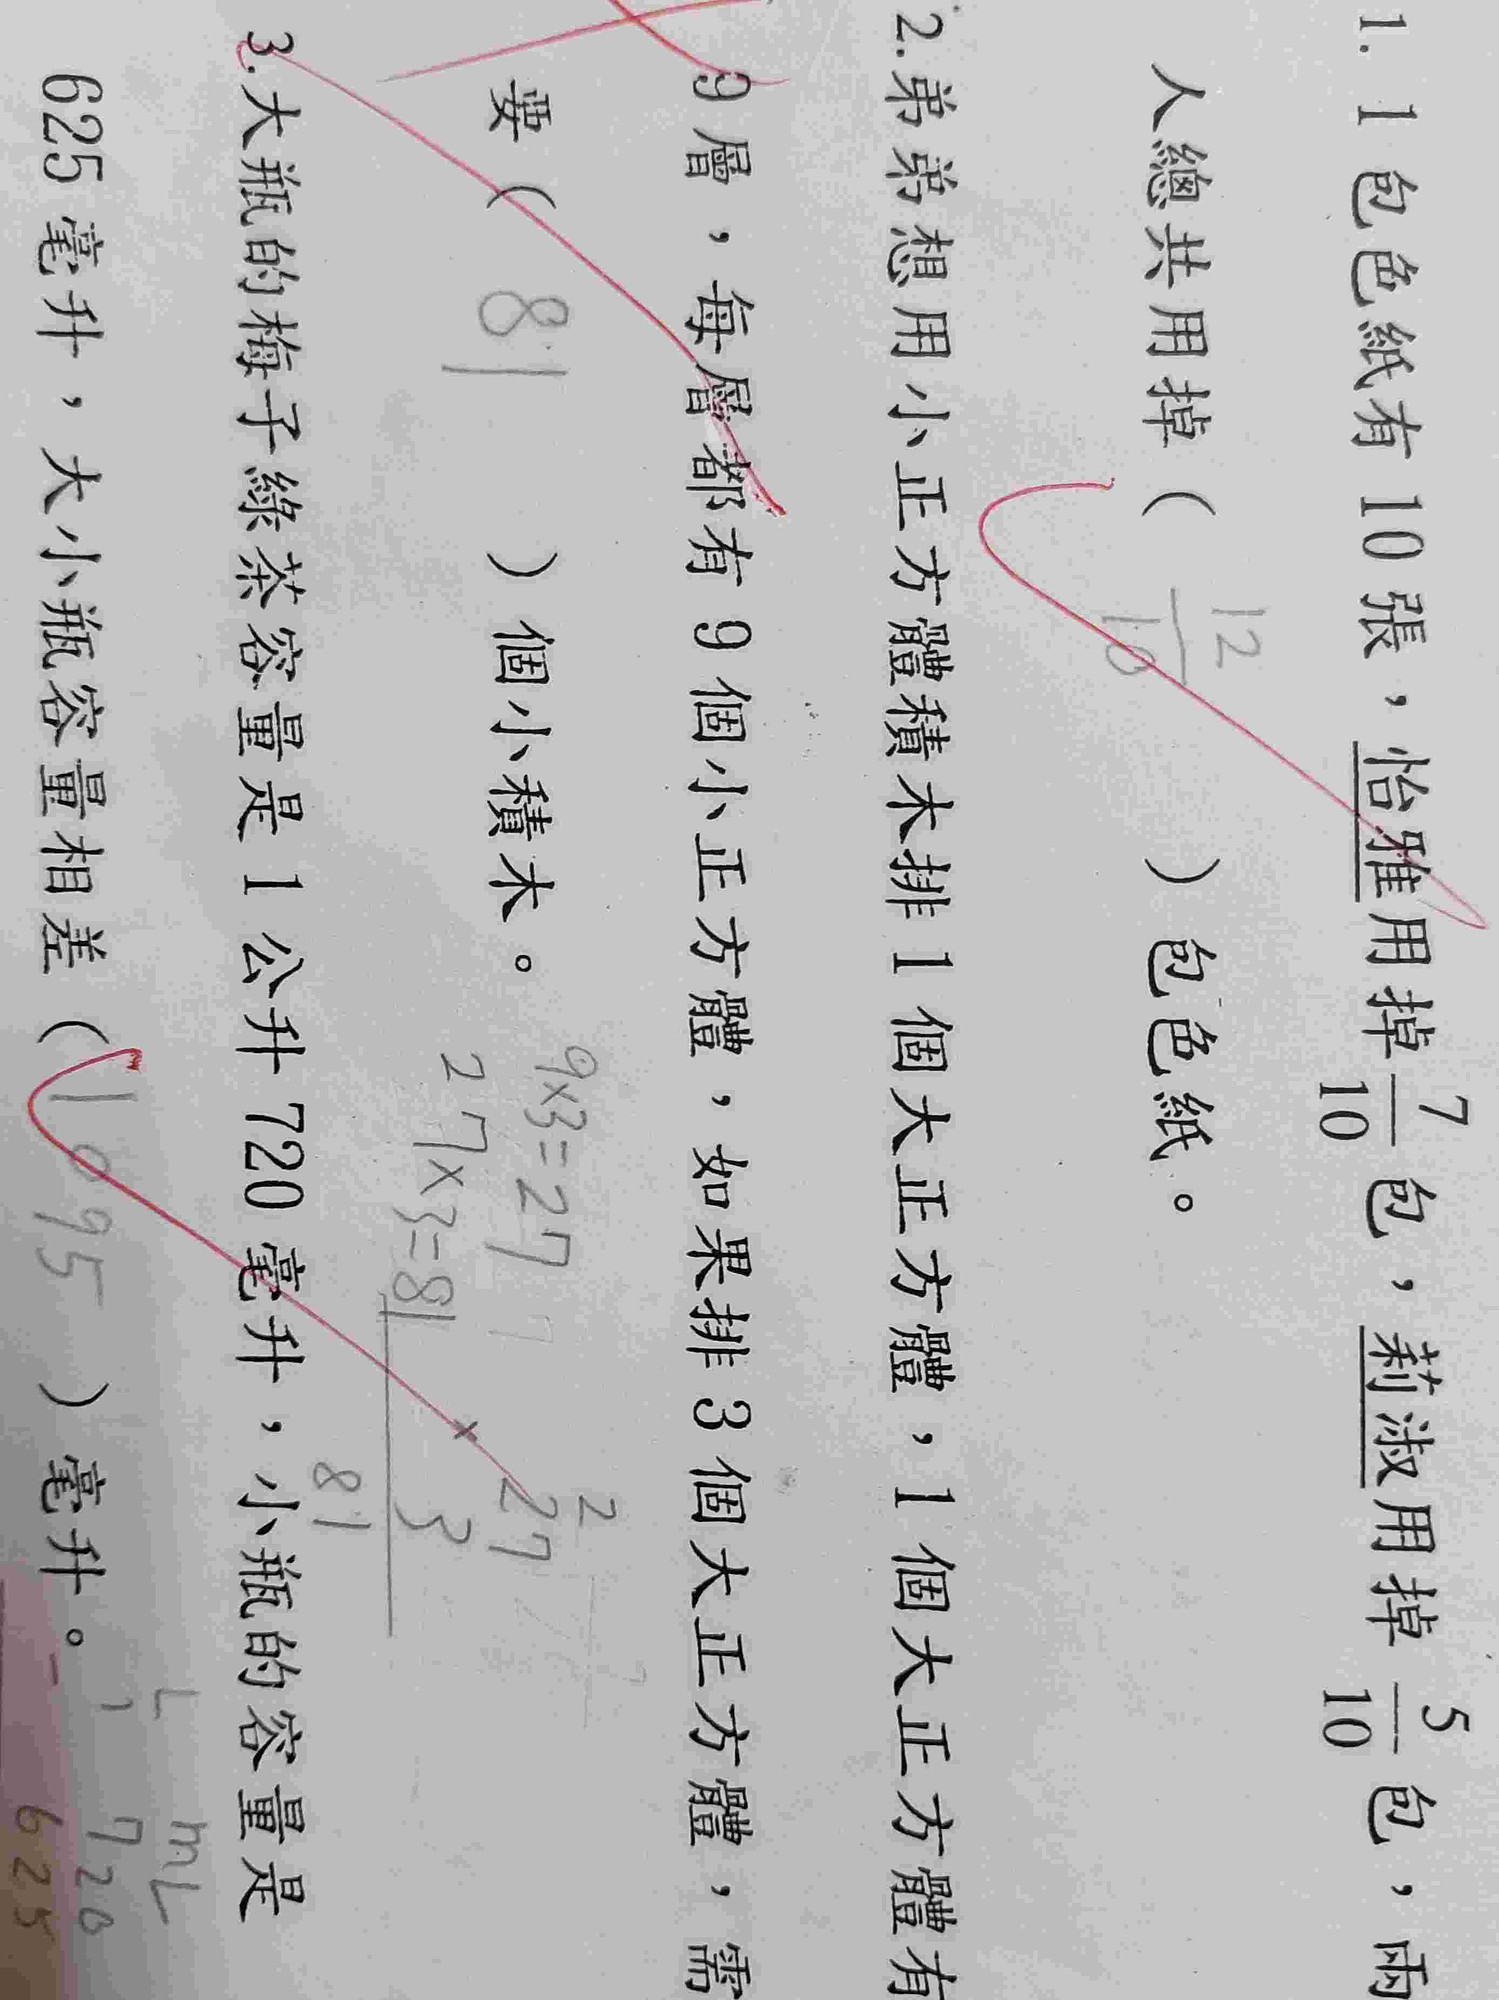 1. 1包色紙有10張，怡雅用掉7/10包，莉淑用掉5/10包，兩
人總共用掉（ 12/10 ）包色紙。
2. 弟弟想用小正方體積木排1個大正方體，1個大正方體有
9層，每層都有9個小正方體，如果排3個大正方體，需
要（ 81 ）個小積木。
9×3=27
27×3=81
2
27
× 3
81
3. 大瓶的梅子綠茶容量是1公升720毫升，小瓶的容量是
625毫升，大小瓶容量相差（1095）毫升。
L mL
1 720
625